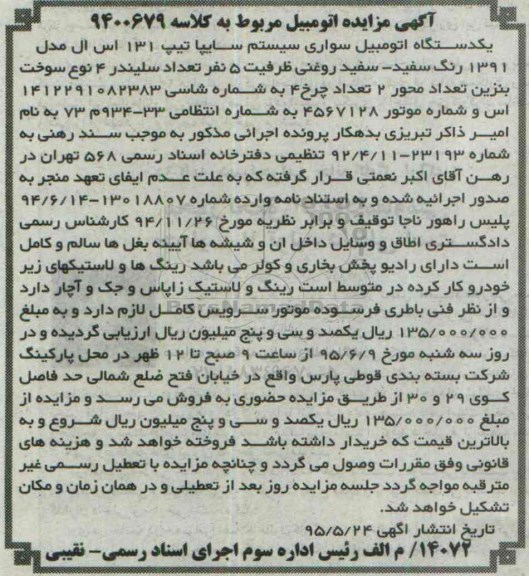 آگهی مزایده اتومبیل مربوط به کلاسه ۹۴۰۰۶۷۹
یکدستگاه اتومبیل سواری سیستم سایپا تیپ ۱۳۱ اس ال مدل
۱۳۹۱ رنگ سفید- سفید روغنی ظرفیت ۵ نفر تعداد سلیندر ۴ نوع سوخت
بنزین تعداد محور ۲ تعداد چرخ۴ به شماره شاسی ۱۴۱۲۲۹۱۰۸۲۳۸۳
اس و شماره موتور ۴۵۶۷۱۲۸ به شماره انتظامی ۳۳-۹۳۴م ۷۳ به نام
امیر ذاکر تبریزی بدهکار پرونده اجرائی مذکور به موجب سند رهنی به
شماره ۲۳۱۹۳-۹۲/۴/۱۱ تنظیمی دفترخانه اسناد رسمی ۵۶۸ تهران در
رهن آقای اکبر نعمتی قرار گرفته که به علت عدم ایفای تعهد منجر به
صدور اجرائیه شده و به استناد نامه وارده شماره ۱۳۰۱۸۸۰۷-۹۴/۶/۱۴
پلیس راهور ناجا توقیف و برابر نظریه مورخ ۹۴/۱۱/۲۶ کارشناس رسمی
دادگستری اطاق و وسایل داخل ان و شیشه ها آیینه بغل ها سالم و کامل
است دارای رادیو پخش بخاری و کولر می باشد رینگ ها و لاستیکهای زیر
خودرو کار کرده در متوسط است رینگ و لاستیک زاپاس و جک و آچار دارد
و از نظر فنی باطری فرسوده موتور سرویس کامل لازم دارد و به مبلغ
۱۳۵/۰۰۰/۰۰۰ ریال یکصد و سی و پنج میلیون ریال ارزیابی گردیده و در
روز سه شنبه مورخ ۹۵/۶/۹ از ساعت ۹ صبح تا ۱۲ ظهر در محل پارکینگ
شرکت بسته بندی قوطی پارس واقع در خیابان فتح ضلع شمالی حد فاصل
کوی ۲۹ و ۳۰ از طریق مزایده حضوری به فروش می رسد و مزایده از
مبلغ ۱۳۵/۰۰۰/۰۰۰ ریال یکصد و سی و پنج میلیون ریال شروع و به
بالاترین قیمت که خریدار داشته باشد فروخته خواهد شد و هزینه های
قانونی وفق مقررات وصول می گردد و چنانچه مزایده با تعطیل رسمی غیر
مترقبه مواجه گردد جلسه مزایده روز بعد از تعطیلی و در همان زمان و مکان
تشکیل خواهد شد.
تاریخ انتشار اگهی ۹۵/۵/۲۴
۱۴۰۷۲/ م الف رئیس اداره سوم اجرای اسناد رسمی- نقیبی